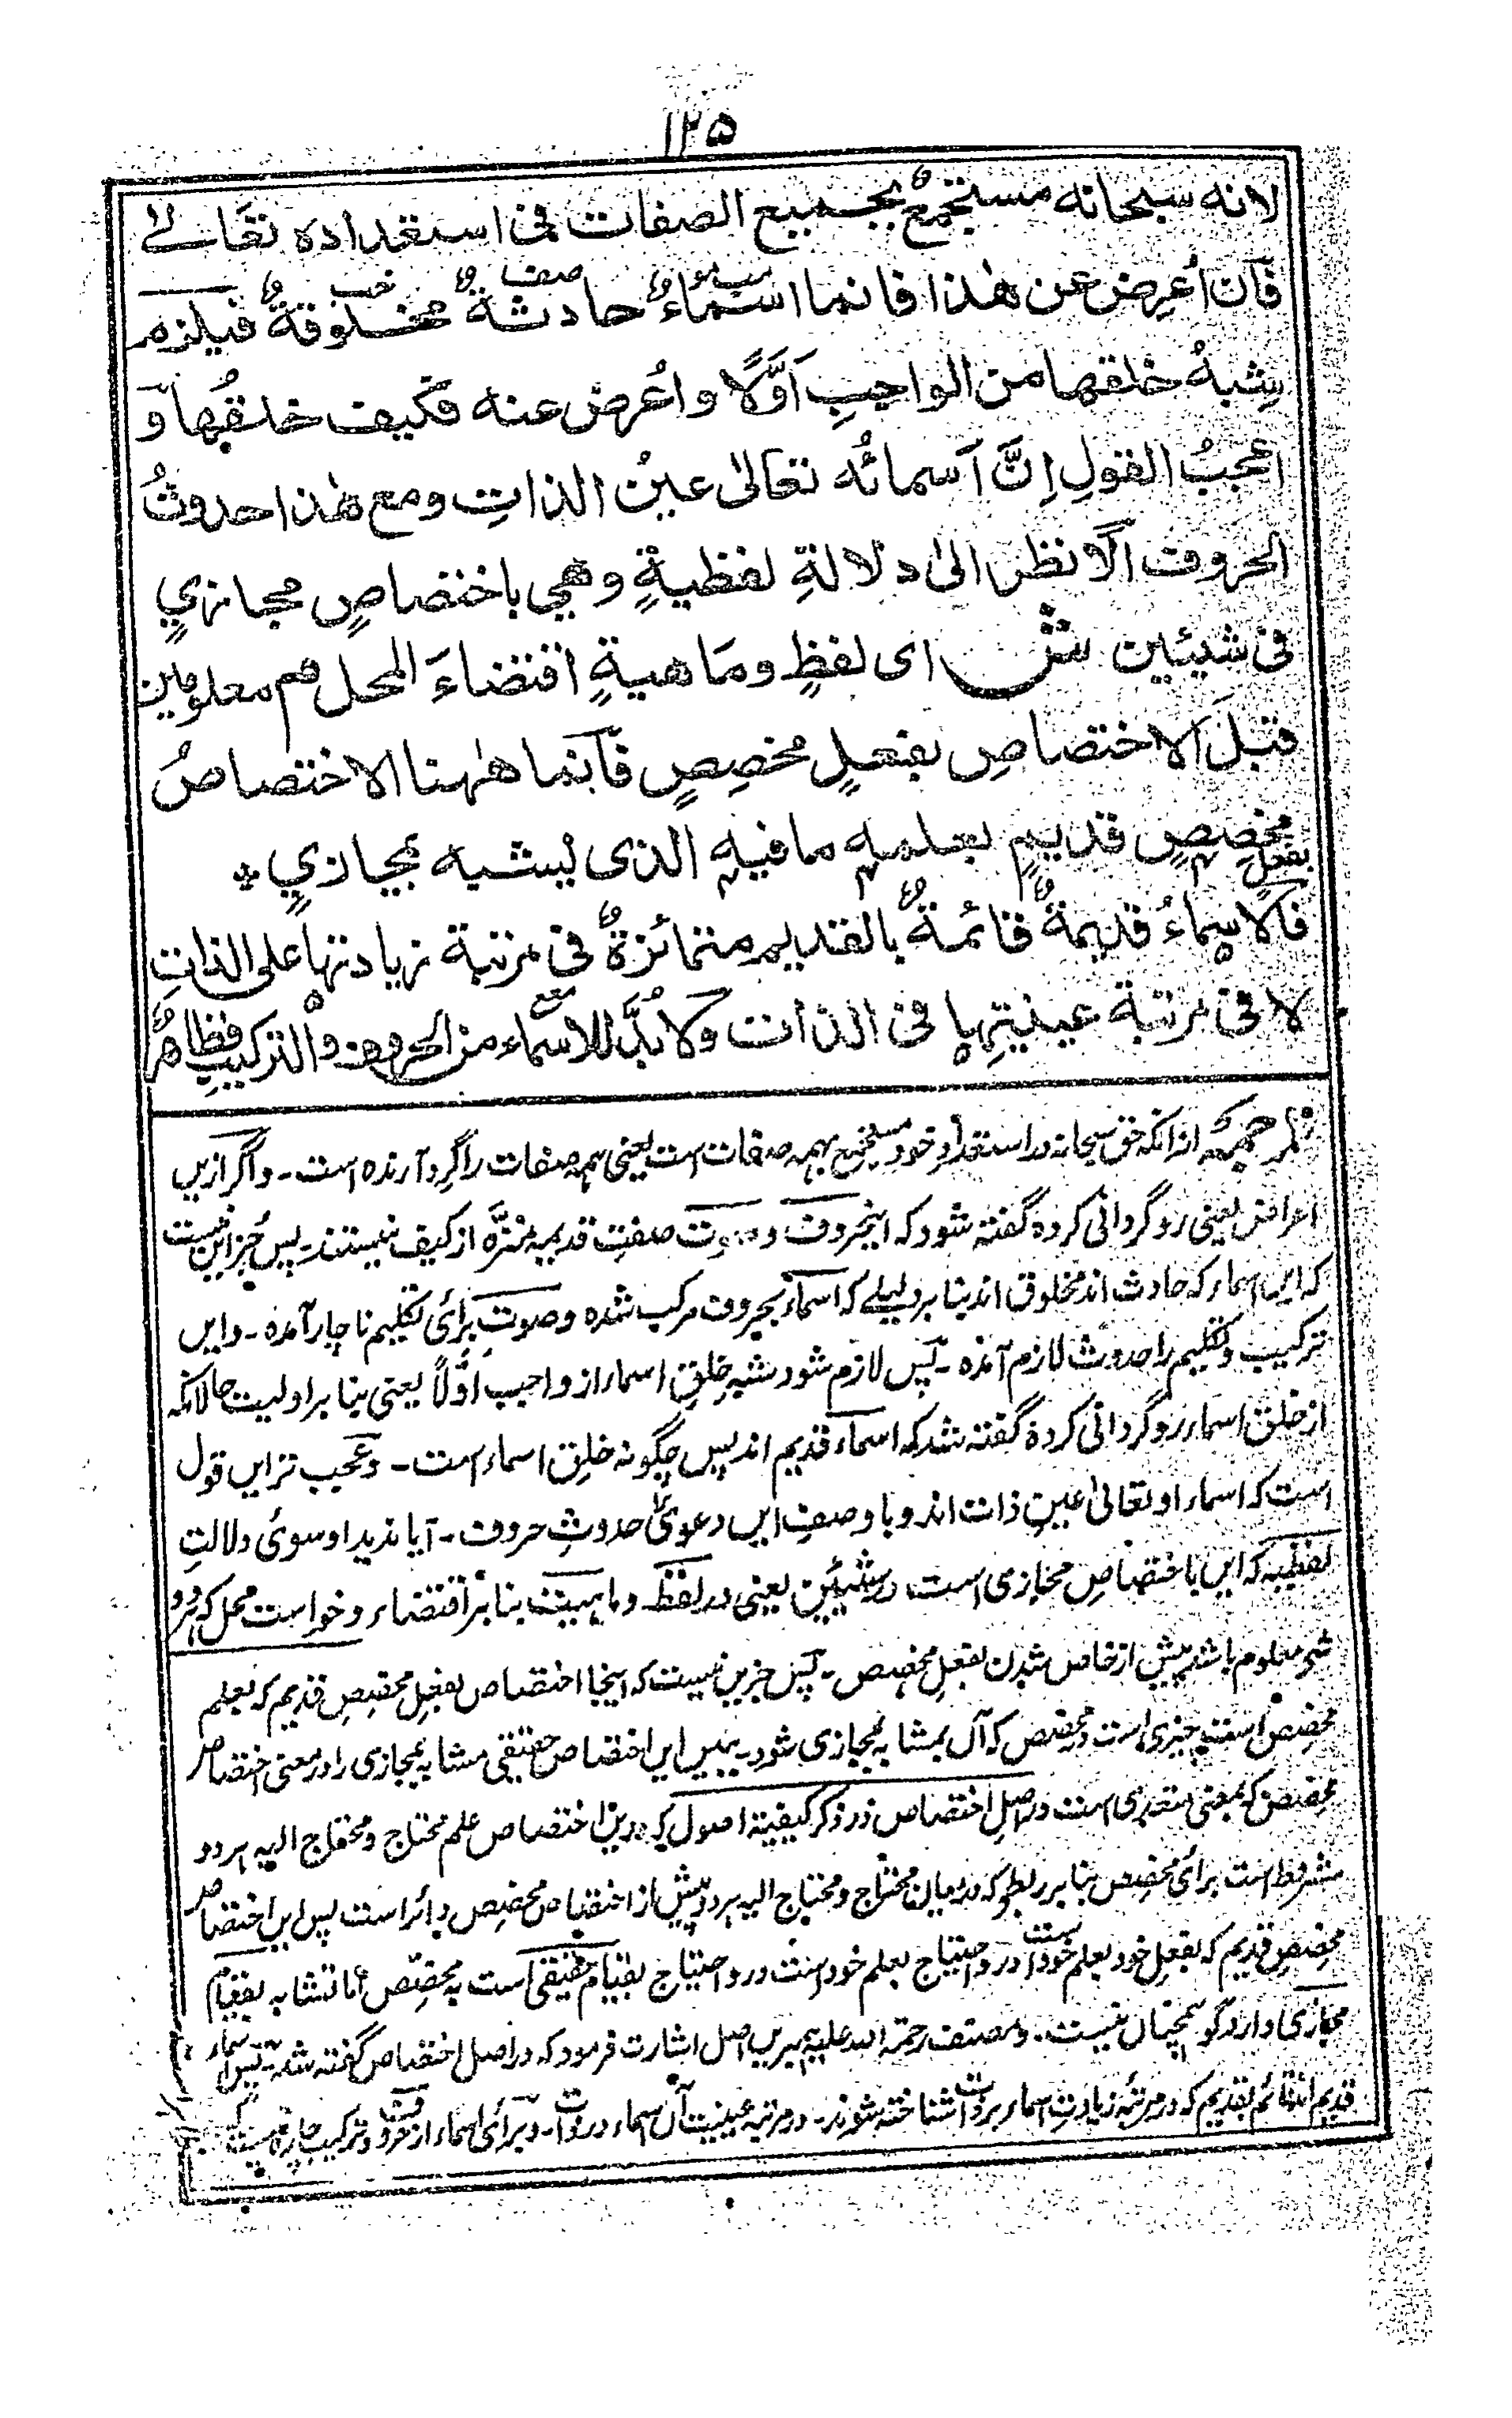 ١٢٥
لانه سبحانه مستجمعٌ بجميع الصفات فى استعداده تعالے
فَاَن اُعرِض عن هٰذا فانما اسماءٌ حادثةٌ مخلوقةٌ فيلزم
شِبهُ خلقها من الواجبِ اَوَّلًا واُعرض عنه فكيف خلقُها وَ
اعجبُ القولِ اِنَّ اَسمائُه تعالىٰ عينُ الذاتِ ومع هٰذا حدوثُ
الحروف اَلَا نظر الىٰ دلالةِ لفظيةٍ وهي باختصاصٍ مجازيٍ
فى شيئين ش اى لفظٍ ومَاهيةٍ اقتضاءَ المحل م معلومين
قبلَ الاختصاصِ بفعلٍ مخصِصٍ فَاَنما هٰهنا الاختصاصُ
بفعل مخصِصٍ قديمٍ بعلمهٖ مافيهٖ الذى يشبه بمجازيٍ *
فَالاسماءُ قديمةٌ قائمةٌ بالقديم متمائزةٌ فى مرتبة زيادتها على الذاتِ
لا فى مرتبة عينيتها فى الذات وَلا بُدَّ للاسماء من الحروف والتركيبِ فظاهرٌ
ترجمہ ازانکہ حق سبحانہ در استعدادِ خود مستجمع بہمہ صفات است یعنی ہمہ صفات را گرد آرندہ است۔ واگر ازیں
اعراض یعنی روگردانی کردہ گفتہ شود کہ اینحروف و صوت صفتِ قدیمہ منزّہ از کیف نیستند۔ پس جُز این نیست
کہ ایں اسماء کہ حادث اند مخلوق اند بنا بر دلیلے کہ اسماء بحروف مرکب شدہ وصوت برائ تکلیم ناچار آمدہ۔ وایں
ترکیب وتکلیم را حدوث لازم آمدہ۔ پس لازم شود شبہِ خلقِ اسماء از واجب اوّلًا یعنی بنا بر اولیت حالانکہ
از خلق اسماء روگردانی کردہ گفتہ شد کہ اسماء قدیم اند پس چگونہ خلقِ اسماء است۔ وعجیب تر ایں قول
است کہ اسماء او تعالیٰ عینِ ذات اند و با وصفِ ایں دعویٰ حدوثِ حروف۔ آیا ندید او سوئ دلالتِ
لفظیہ کہ ایں باختصاصِ مجازی است در شیئین یعنی در لفظ وماہیت بنا بر اقتضاء وخواست محل کہ ہر دو
شے معلوم باشد پیش از خاص شدن بفعلِ مخصص۔ پس جزین نیست کہ اینجا اختصاص بفعلِ مخصِص قدیم کہ بعلم
مخصِص است چیزی است در مخصَص کہ آں بمشابہ بمجازی شود۔ ببیں ایں اختصاص حقیقی مشابہ بمجازی را در معنی اختصاص
مخصِص کہ بمعنی متعدی است در اصلِ اختصاص در ذکر کیفیۃ اصول کہ درین اختصاص علم محتاج ومحتاج الیہ ہر دو
مشروط است برائ مخصِص بنا بر ربطے کہ درمیان محتاج ومحتاج الیہ ہر دو پیش از اختصاص مخصِص دائر است پس ایں اختصاص
مخصِصِ قدیم کہ بفعلِ خود بعلمِ خود است در واحتیاج بعلم خود است در واحتیاج بقیامِ حقیقی است بہ مخصِّص اما تشابہ بقیام
مجازی دارد گو ہمچناں نیست۔ ومصنف رحمۃ اللہ علیہ ہمبریں اصل اشارت فرمود کہ در اصل اختصاص گفتہ شد۔ پس اسماء
قدیم اند قائم بقدیم کہ در مرتبۂ زیادتِ اسماء بر ذات شناختہ شوند۔ نہ در مرتبہ عینیت آں اسماء در ذات۔ وبرائ اسماء از حروف وترکیب چارہ نیست